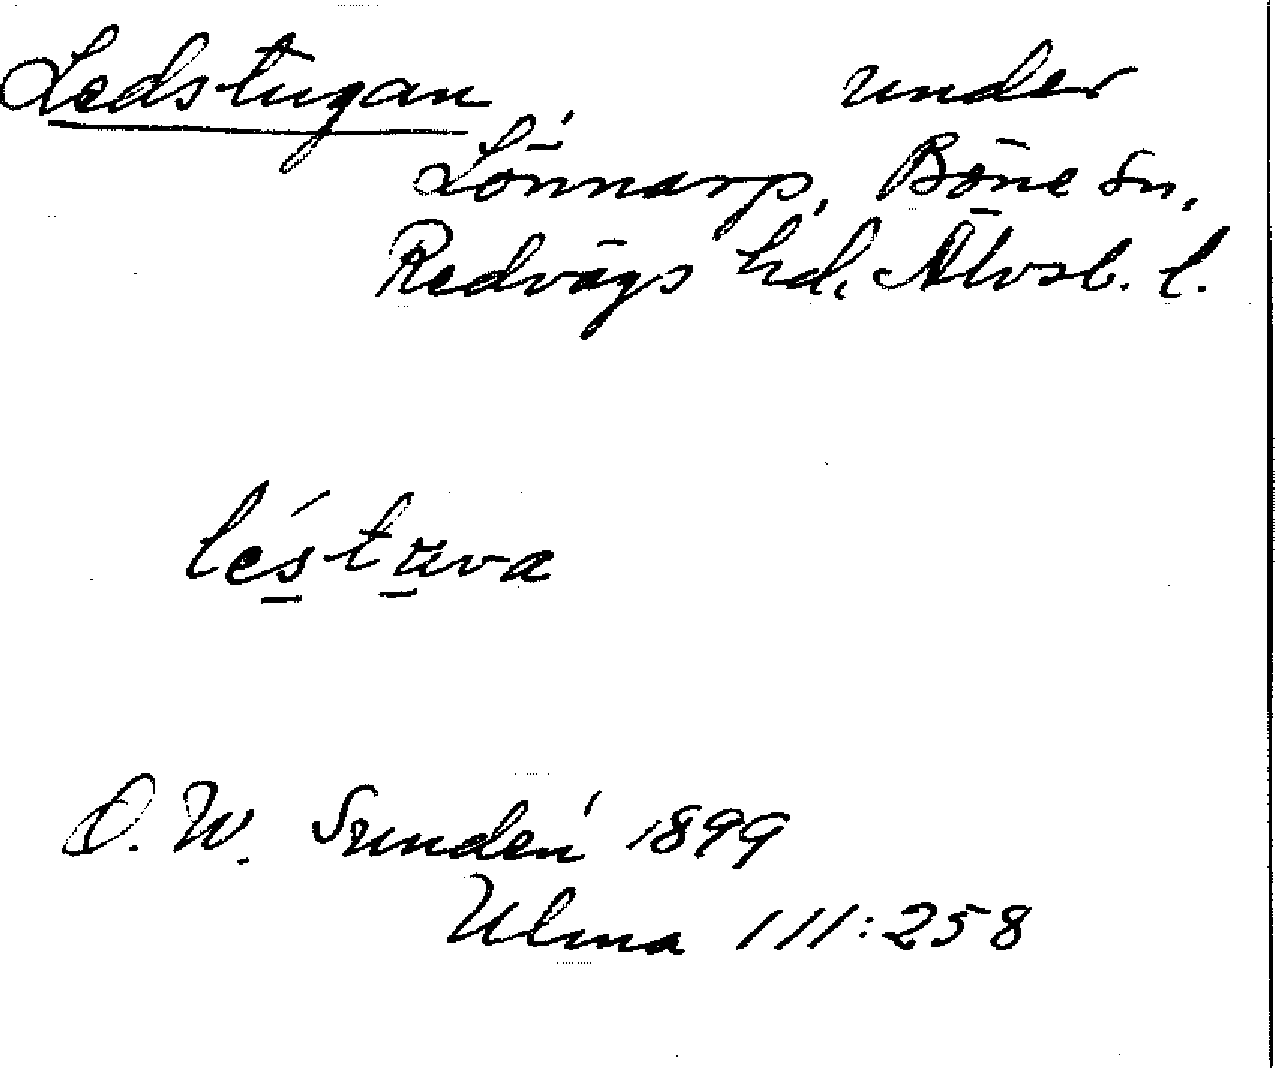 Ledstugan under
Lönnarp, Böne sn,
Redvägs hd, Älvsb. l.
léstuva
D. W. Sundén 1899
Ulma 111:258